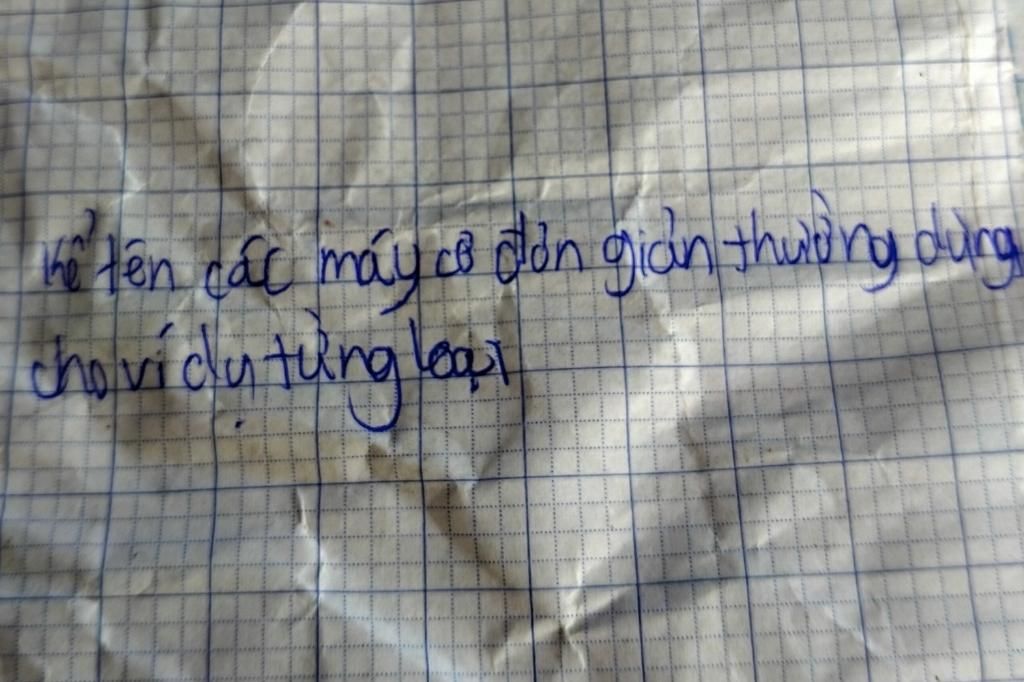 kể tên các máy cơ đơn giản thường dùng
cho ví dụ từng loại